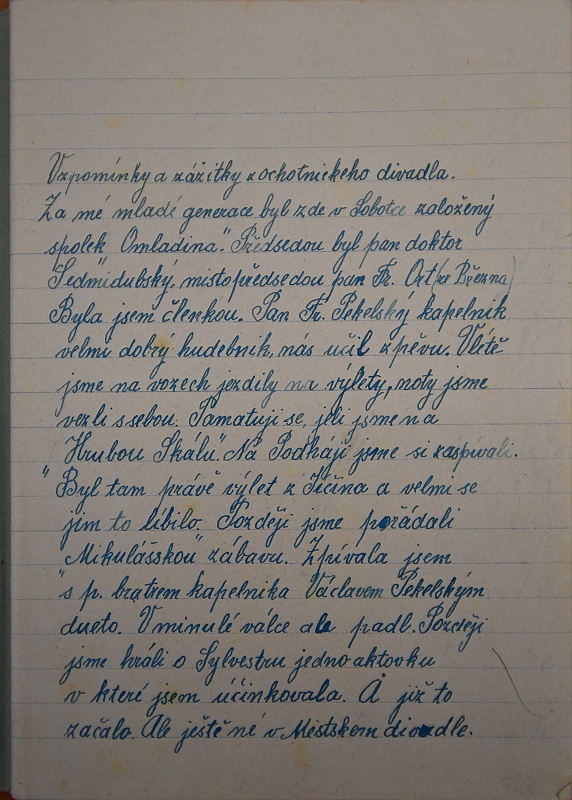 Vzpomínky a zážitky z ochotnickeho divadla.
Za mé mladé generace byl zde v Sobotce založený
spolek Omladina". Předsedou byl pan doktor
Sedmidubský, mistopředsedou pan Fr. Ort (ze Března)
Byla jsem členkou. Pan Fr. Pekelský kapelnik
velmi dobrý hudebnik, nás učil zpěvu. Vlétě
jsme na vozech jezdily na výlety, noty jsme
vezli ssebou. Pamatuji se, jeli jsme na
Hrubou Skálu". Na Podháji jsme si zaspívali.
"Byl tam právě výlet z Jičina a velmi se
jim to líbilo. Pozdeji jsme pořádali
Mikulášskou" zábavu. Zpívala jsem
"s p. bratrem kapelnika Václavem Pekelským
dueto. V minulé válce ale padl. Pozdeji
jsme hráli o Sylvestru jednoaktovku
v které jsem účinkovala. A již to
začalo. Ale ještě né v Městskem divadle.